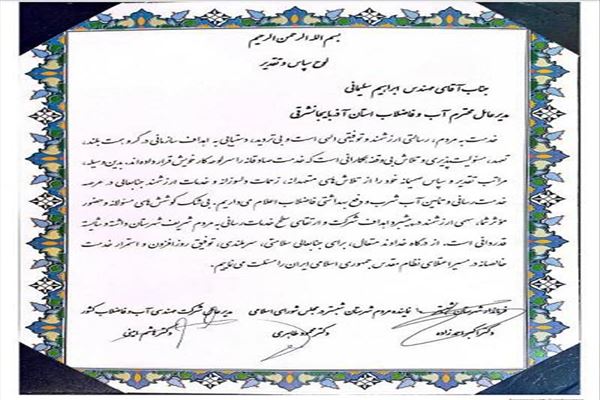 بسم الله الرحمن الرحیم
لوح سپاس و تقدیر
جناب آقای مهندس ابراهیم سلیمانی
مدیرعامل محترم آب و فاضلاب استان آذربایجانشرقی
خدمت به مردم، رسالتی ارزشمند و توفیقی الهی است و بی‌تردید، دستیابی به اهداف سازمانی در گرو همت بلند،
تعهد، مسئولیت‌پذیری و تلاش بی‌وقفه همکارانی است که خدمت صادقانه را سرلوحه کار خویش قرار داده‌اند، بدین وسیله،
مراتب تقدیر و سپاس صمیمانه خود را از تلاش‌های متعهدانه، زحمات دلسوزانه و خدمات ارزشمند جنابعالی در عرصه
خدمت رسانی و تأمین آب شرب و دفع بهداشتی فاضلاب اعلام می‌داریم. بی‌شک کوشش‌های مسئولانه و حضور
مؤثر شما، سهمی ارزشمند در پیشبرد اهداف شرکت و ارتقای سطح خدمات رسانی به مردم شریف شهرستان داشته و شایسته
قدردانی است. از درگاه خداوند متعال، برای جنابعالی سلامتی، سربلندی، توفیق روزافزون و استمرار خدمت
خالصانه در مسیر اعتلای نظام مقدس جمهوری اسلامی ایران را مسئلت می‌نماییم.
فرماندار شهرستان شبستر نماینده مردم شهرستان شبستر در مجلس شورای اسلامی مدیرعامل شرکت مهندسی آب و فاضلاب کشور
دکتر محمود طاهری دکتر هاشم امینی